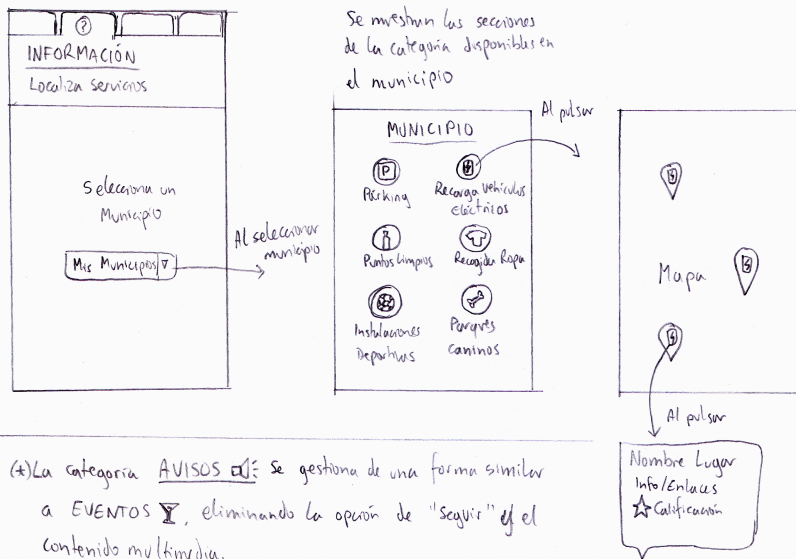 ?
INFORMACIÓN
Localiza servicios
Selecciona un
Municipio
Mis Municipios
Al seleccionar
municipio
Se muestran las secciones
de la categoría disponibles en
el municipio
MUNICIPIO
P
Párking
Recarga vehículos
Eléctricos
Puntos Limpios
Recogida Ropa
Instalaciones
Deportivas
Parques
caninos
Al pulsar
Mapa
Al pulsar
Nombre Lugar
Info/Enlaces
Calificación
(*)La categoría AVISOS : Se gestiona de una forma similar
a EVENTOS , eliminando la opción de "Seguir" y el
contenido multimedia.